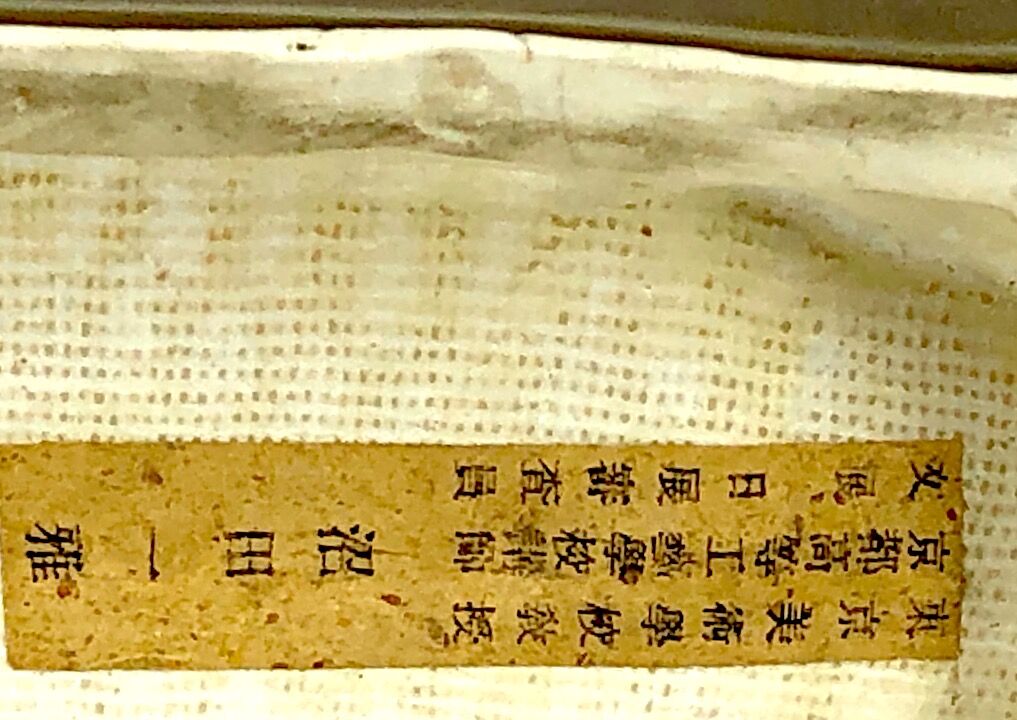 東京美術學校教授
京都高等工藝學校講師
文展、日展審査員
沼田一雅